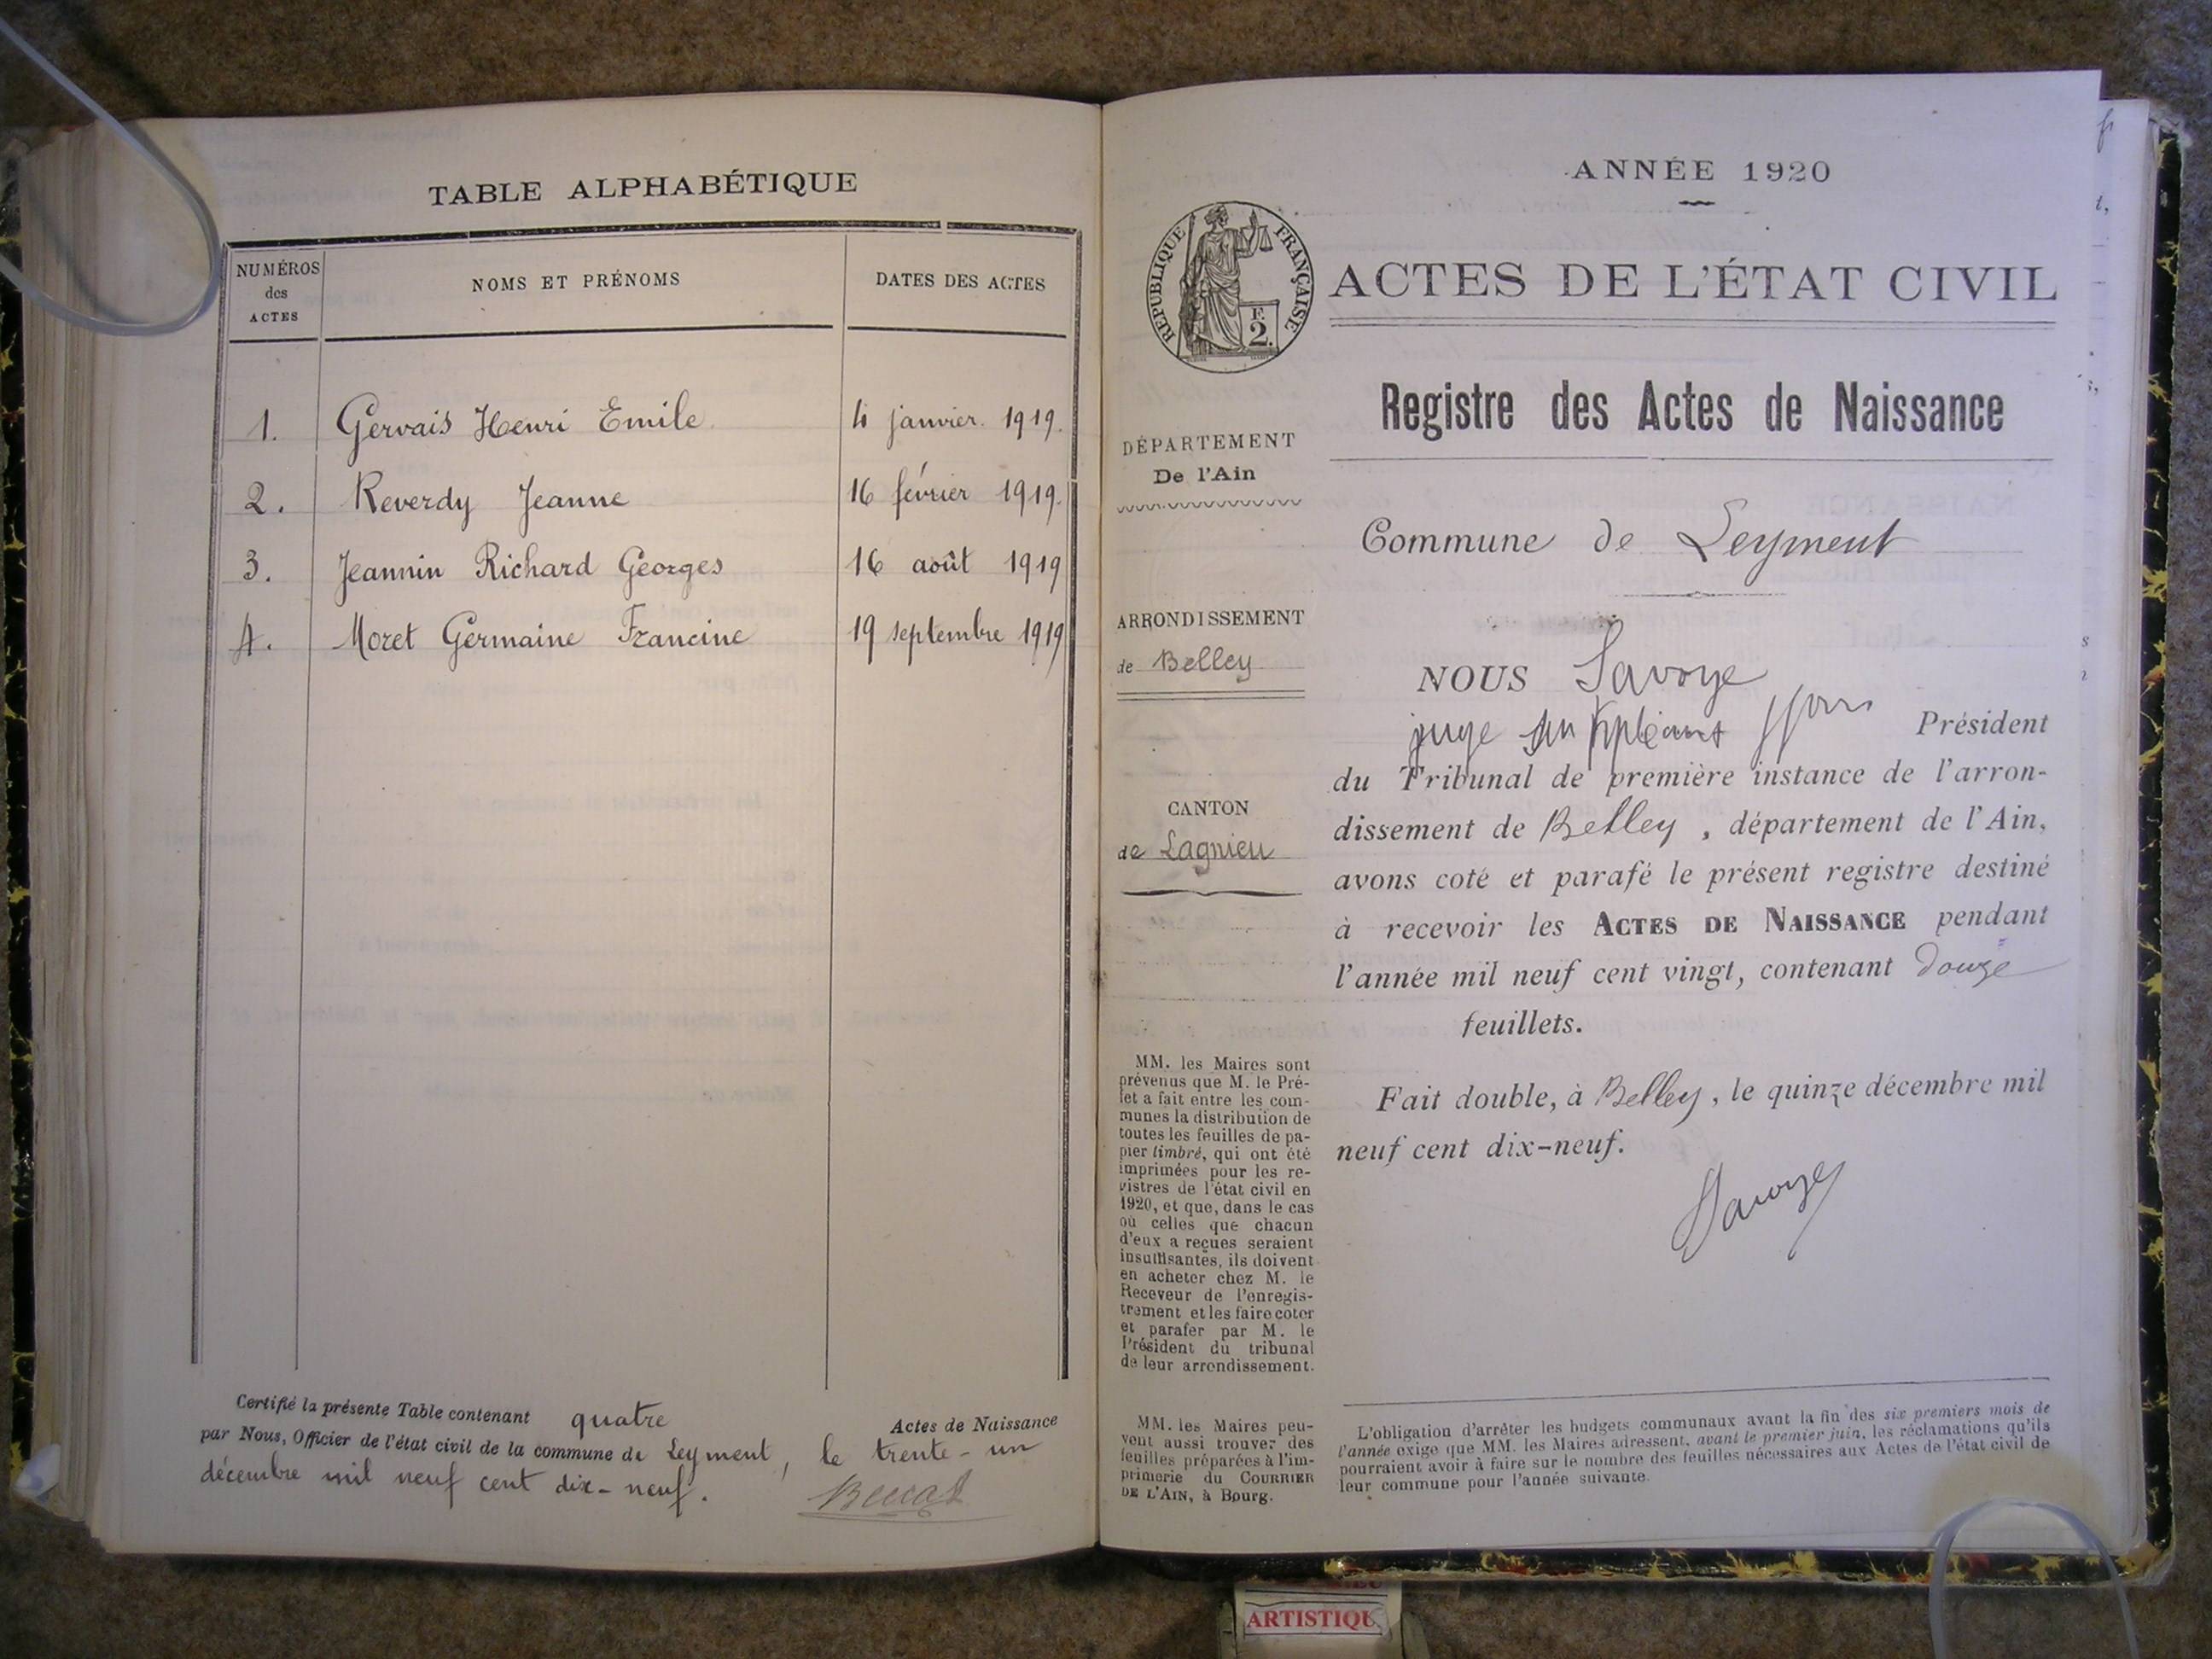 TABLE ALPHABÉTIQUE
NUMÉROS
des
ACTES
NOMS ET PRÉNOMS
DATES DES ACTES
1. Gervais Henri Emile 4 janvier. 1919.
2. Reverdy Jeanne 16 février 1919.
3. Jeannin Richard Georges 16 août 1919
4. Moret Germaine Francine 19 septembre 1919
Certifié la présente Table contenant quatre Actes de Naissance
par Nous, Officier de l'état civil de la commune de Leyment, le trente-un
décembre mil neuf cent dix-neuf.
ANNÉE 1920
RÉPUBLIQUE FRANÇAISE
F.
2.
ACTES DE L'ÉTAT CIVIL
Registre des Actes de Naissance
DÉPARTEMENT
De l'Ain
Commune de Leyment
ARRONDISSEMENT
de Belley
CANTON
de Lagnieu
NOUS Savoye
juge suppléant Président
du Tribunal de première instance de l'arron-
dissement de Belley, département de l'Ain,
avons coté et parafé le présent registre destiné
à recevoir les ACTES DE NAISSANCE pendant
l'année mil neuf cent vingt, contenant douze
feuillets.
Fait double, à Belley, le quinze décembre mil
neuf cent dix-neuf.
Savoye
MM. les Maires sont
prévenus que M. le Pré-
fet a fait entre les com-
munes la distribution de
toutes les feuilles de pa-
pier timbré, qui ont été
imprimées pour les re-
gistres de l'état civil en
1920, et que, dans le cas
où celles que chacun
d'eux a reçues seraient
insuffisantes, ils doivent
en acheter chez M. le
Receveur de l'enregis-
trement et les faire coter
et parafer par M. le
Président du tribunal
de leur arrondissement.
MM. les Maires peu-
vent aussi trouver des
feuilles préparées à l'im-
primerie du COURRIER
DE L'AIN, à Bourg.
L'obligation d'arrêter les budgets communaux avant la fin des six premiers mois de
l'année exige que MM. les Maires adressent, avant le premier juin, les réclamations qu'ils
pourraient avoir à faire sur le nombre des feuilles nécessaires aux Actes de l'état civil de
leur commune pour l'année suivante.
ARTISTIQU